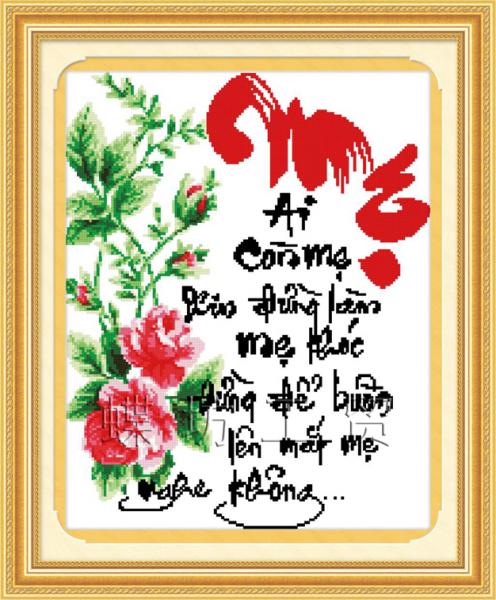 Mẹ
Ai
Còn mẹ
Xin đừng làm
mẹ khóc
đừng để buồn
lên mắt mẹ
nghe không...